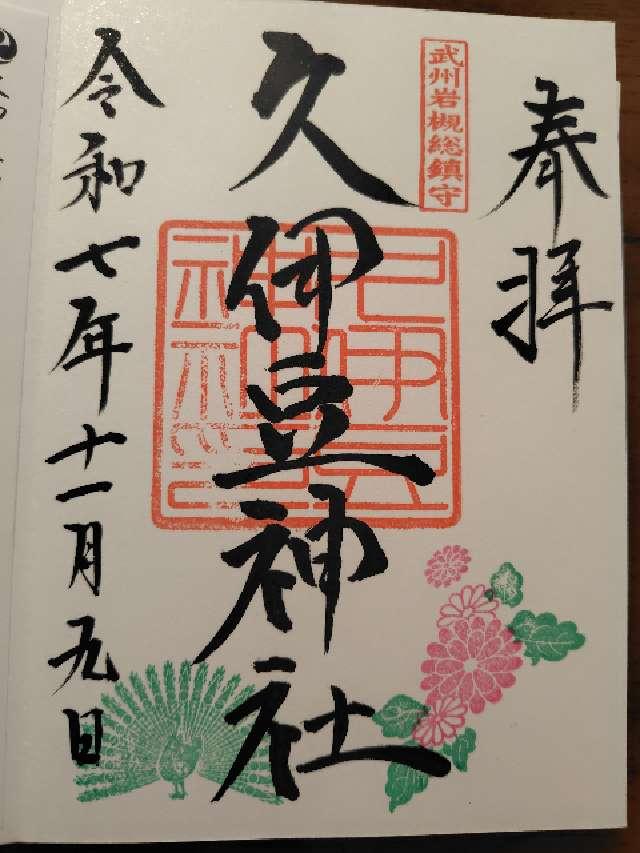 奉拝
武州岩槻総鎮守
久伊豆神社
令和七年十一月九日